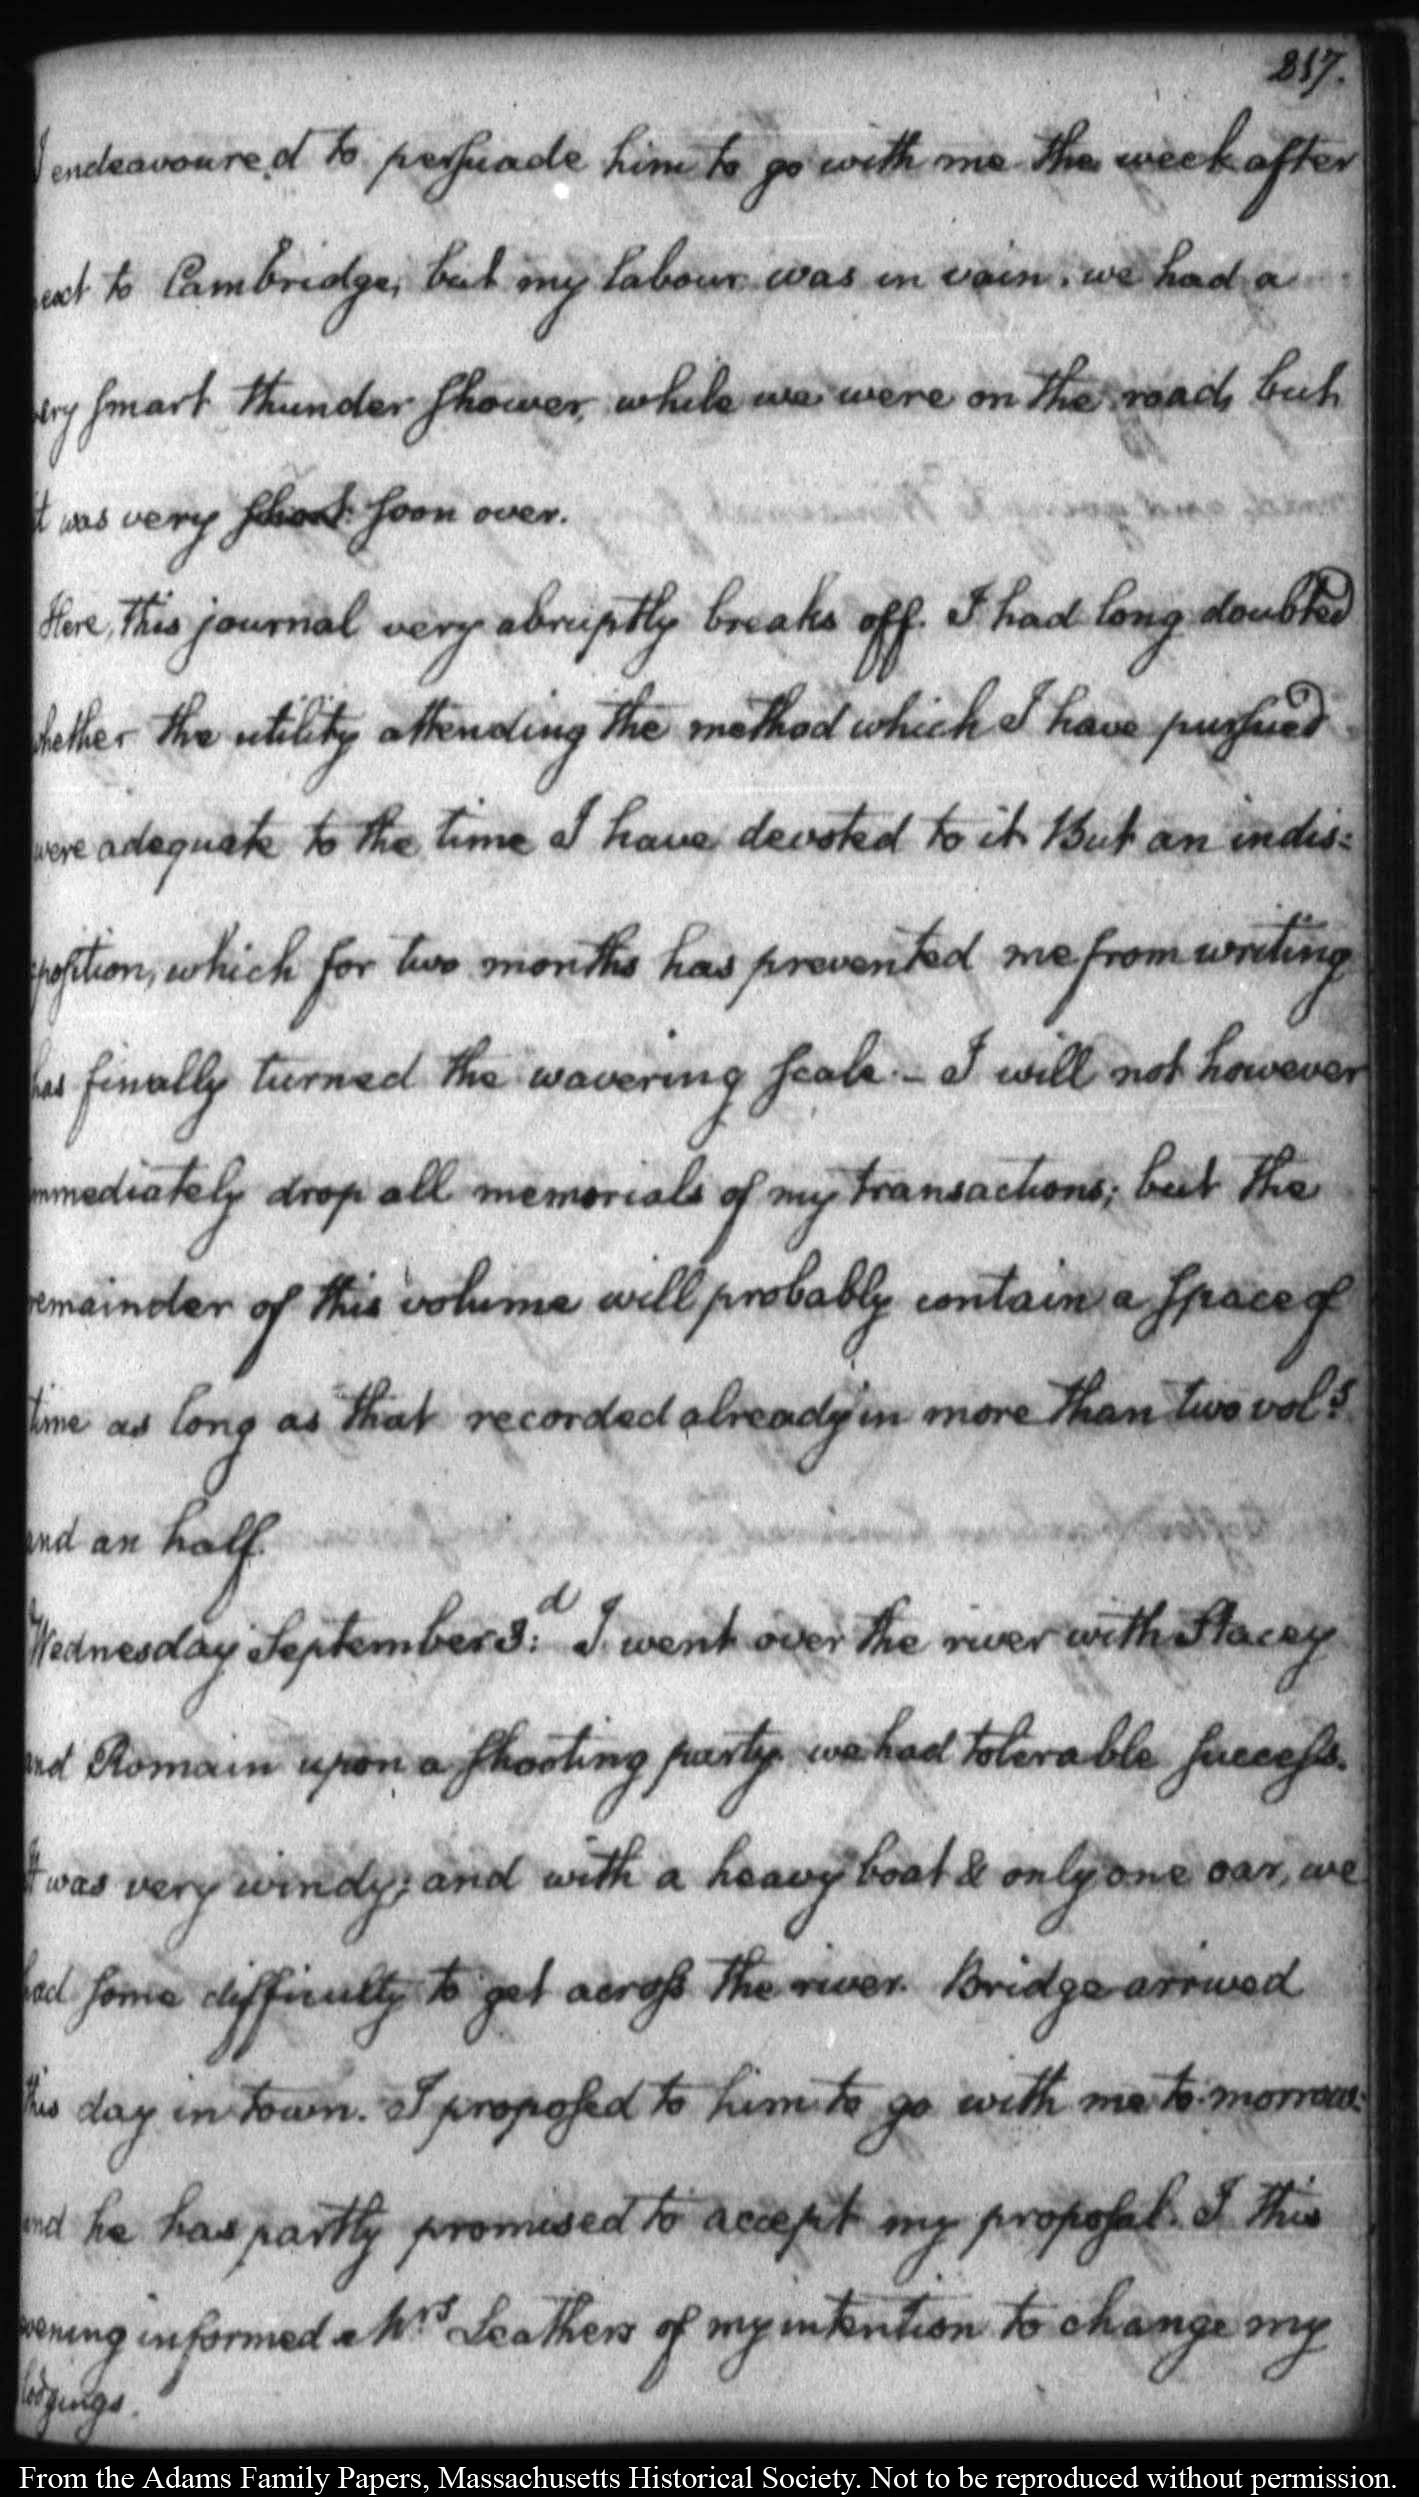 217.
I endeavoured to persuade him to go with me the week after
next to Cambridge, but my labour was in vain. we had a
very smart thunder shower, while we were on the road, but
it was very short soon over.
Here, this journal very abruptly breaks off. I had long doubted
whether the utility attending the method which I have pursued
were adequate to the time I have devoted to it But an indis=
=position, which for two months has prevented me from writing
has finally turned the wavering scale. — I will not however
immediately drop all memorials of my transactions; but the
remainder of this volume will probably contain a space of
time as long as that recorded already in more than two vols
and an half.
Wednesday September 3:d I went over the river with Stacey
and Romain upon a shooting party. we had tolerable success.
It was very windy; and with a heavy boat & only one oar, we
had some difficulty to get across the river. Bridge arrived
this day in town. I proposed to him to go with me to-morrow:
and he has partly promised to accept my proposal. I this
evening informed Mrs Leathers of my intention to change my
lodgings.
From the Adams Family Papers, Massachusetts Historical Society. Not to be reproduced without permission.